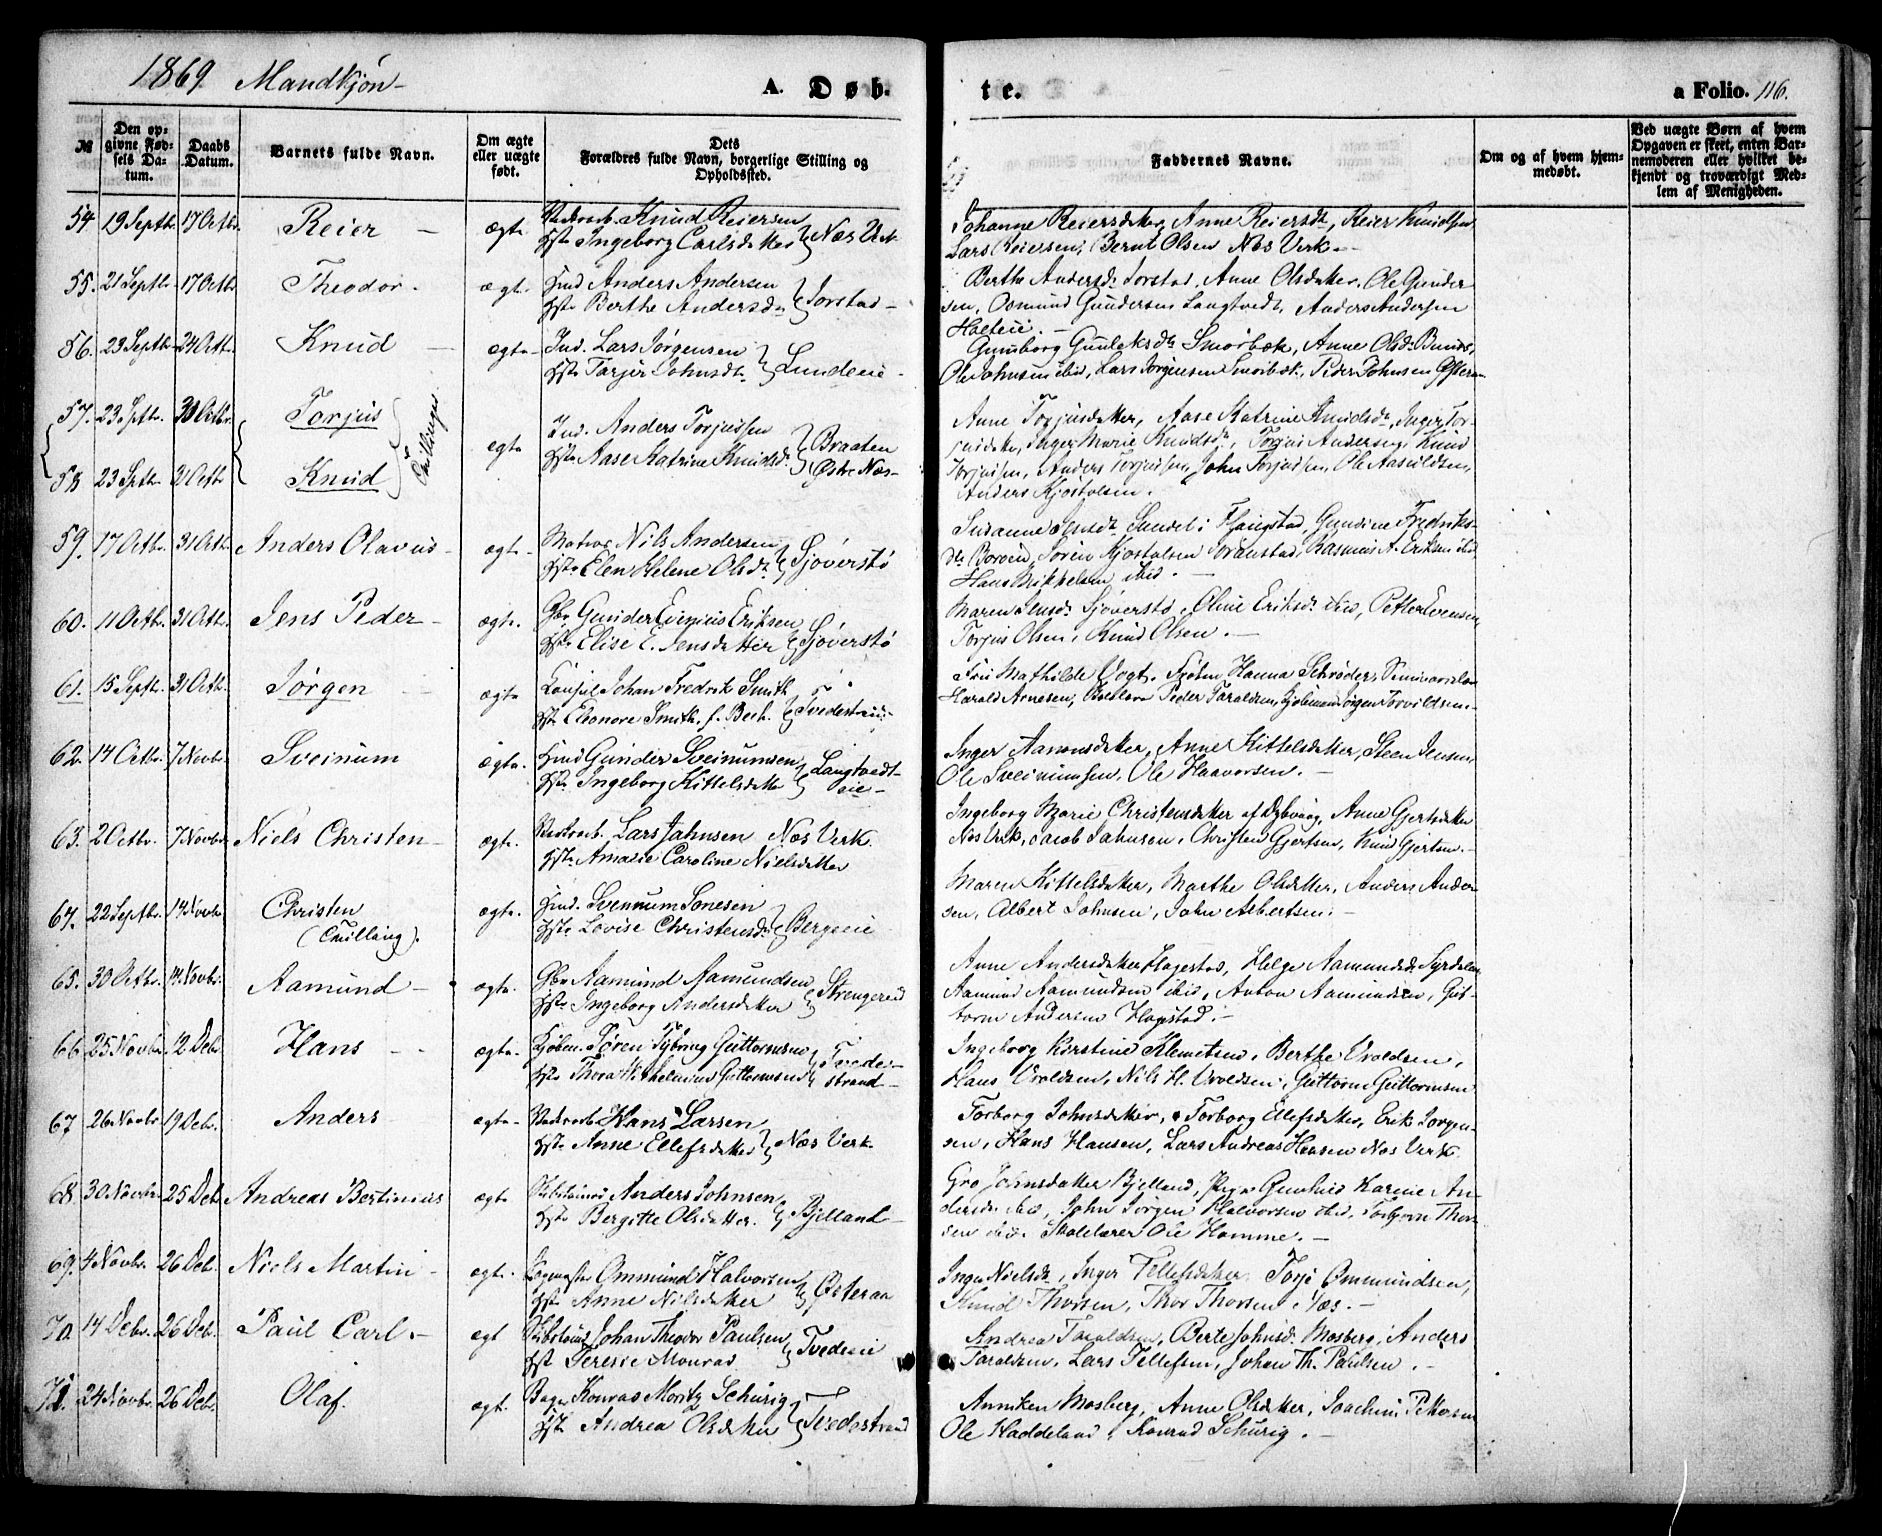 1869 Mandkjøn
A. Døb
te.
a Folio. 116.
№
Den opgivne Fødsels Datum.
Daabs Datum.
Barnets fulde Navn.
Om ægte eller uægte født.
Dets Forældres fulde Navn, borgerlige Stilling og Opholdssted.
Faddernes Navne.
Om og af hvem hjemmedøbt.
Ved uægte Børn af hvem Opgaven er skeet, enten Barnemoderen eller hvilket bekjendt og troværdigt Medlem af Menigheden.
54. 19 Septbr. 17 Octbr. Reier – ægte Knud Reiersen
Hstr. Ingeborg Carlsdatter } Næs Verk
Johanne Reiersdatter, Anne Reiersdtr, Reier Knudsen
Lars Reiersen, Bernt Olsen Næs Verk. –
55. 21 Septbr. 17 Octbr. Theodor. ægte. Hmd Anders Andersen
Hstr Berthe Andersdtr } Jorstad –
Berthe Andersdtr Jorstad, Anne Olsdatter, Ole Gunder
sen, Osmund Gundersen Langtvedt, Anders Andersen
56. 23 Septbr. 24 Octbr. Knud – ægte Ind. Lars Jørgensen
Hstr Tarjer Johnsdtr } Lundeeie –
Gunborg Gunleksdtr Smørbæk, Anne Olsdtr
Ole Johnsen ibid, Lars Jørgensen Smørbæk, Peder Johnsen
57. 23 Septbr. 31 Octbr. Torjus
Tvillinger
ægte Ind. Anders Torjussen
Hstr Aase Katrine Knudsdtr } Braaten
Østre Næs –
58 23 Septbr 31 Octbr Knud
Anne Torjusdatter, Aase Katrine Knudsdtr, Inger Tor-
jusdatter, Inger Marie Knudsdtr, Torjus Andersen, Knud
Torjussen, Anders Torjussen, John Torjussen, Ole Aasuldsen,
Anders Kjøstolsen.
59. 17 Octbr. 31 Octbr. Anders Olavus – ægte Matros Nils Andersen
Hstr Elen Helene Olsdtr } Sjøverstø
Susanne Sundel i Gundine Fredriks-
dtr Borøen, Søren Kjøstolsen Rasmus A. Eriksen ibid,
Hans Mikkelsen ibid. –
60. 11 Octbr. 31 Octbr. Jens Peder – ægte. Gbr Gunder Evenius Eriksen
Hstr Elise E. Jensdatter } Sjøverstø
Maren Jensdtr Sjøverstø, Oline Eriksdtr ibid, Petter Evensen,
Torjus Olsen, Knud Olsen. –
61. 15 Septbr. 31 Octbr. Jørgen ægte Konsul Johan Fredrik Smith
Hstr Eleonore Smith, f. Bech. } Tvedestrand
Fru Mathilde Vogt, Frøken Hanna Schrøder, Seminarielærer
Harald Arnesen, Peder Taraldsen, Kjøbmand Jørgen Torvildsen. –
62. 14 Octbr. 7 Novbr. Sveinum ægte. Hmd Gunder Sveinumsen
Hstr. Ingeborg Kittelsdatter } Langtvedt-
eie –
Inger Aanonsdatter, Anne Kittelsdatter, Steen Jensen,
Ole Sveinumsen, Ole Haavorsen. –
63. 2 Octbr. 7 Novbr Niels Christen – ægte. Lars Jahnsen Næs Verk
Hstr. Amalie Caroline Nielsdatter
Ingeborg Marie Christensdatter af Dybvaag, Anne Gjertsdatter
Næs Verk, Jacob Jahnsen, Christen Gjertsen, Knud Gjertsen. –
64. 22 Septbr. 14 Novbr. Christen
(Tvilling).
ægte. Hmd. Svennum Tønesen
Hstr Lovise Christensdtr } Bergeeie
Maren Kittelsdatter, Marthe Olsdatter, Anders Ander
sen, Albert Johnsen, John Albertsen. –
65. 30 Octbr. 14 Novbr. Aamund – ægte. Gbr Aamund Aamundsen
Hstr Ingeborg Andersdatter } Strengereid
Anne Andersdatter Hagestad, Helge Aamundsdtr Syrdalen,
Aamund Aamundsen ibid, Anton Aamundsen, Gut-
torm Andersen Hagestad. –
66. 25 Novbr. 12 Debr Hans ægte. Kjøbm. Søren Tybring Guttormsen
Hstr Guttormsen } Tvede-
strand –
Ingeborg Kirstine Klemetsen, Berthe Uvoldsen,
Hans Uvoldsen, Nils H. Uvoldsen, Guttorm Guttormsen
67 26 Novbr 19 Debr. Anders ægte – Hans Larsen
Hstr Anne Ellefsdatter } Næs Verk
Torborg Johnsdatter, Torborg Ellefsdatter, Erik Jørgen-
sen, Hans Hansen, Lars Andreas Hansen Næs Verk.
68. 30 Novbr. 25 Debr Andreas Bertinius ægte Anders Johnsen
Hstr Bergitte Olsdatter. } Bjelland –
Gro Johnsdatter Bjelland, Pige Gunhild Karine An-
dersdtr ibid, John Jørgen Halvorsen ibid, Torbjørn Thor
sen ibid. Skolelærer Ole Homme. –
69. 4 Novbr. 26 Debr. Niels Martin – ægte. Ommund Halvorsen
Hstr Anne Nilsdatter } Østeraa
Inger Nielsdtr, Inger Tellefsdatter, Torje Ommundsen,
Knud Thorsen, Thor Thorsen Næs. –
70. 14 Debr. 26 Debr. Paul Carl. – ægt Johan Theodor Paulsen
Hstr Teresie Monrad } Tvedeeie
Andrea Taraldsen, Berte Johnsdtr Mosberg, Anders
Taraldsen, Lars Tellefsen, Johan Th. Paulsen. –
71. 24 Novbr. 26 Debr. Olaf. ægt. Bager Konrad Moritz Schurig
Hstr Andrea Olsdatter } Tvedestrand
Anniken Mosberg, Anne Olsdatter, Joachim Pettersen
Ole Haddeland, Konrad Schurig. –